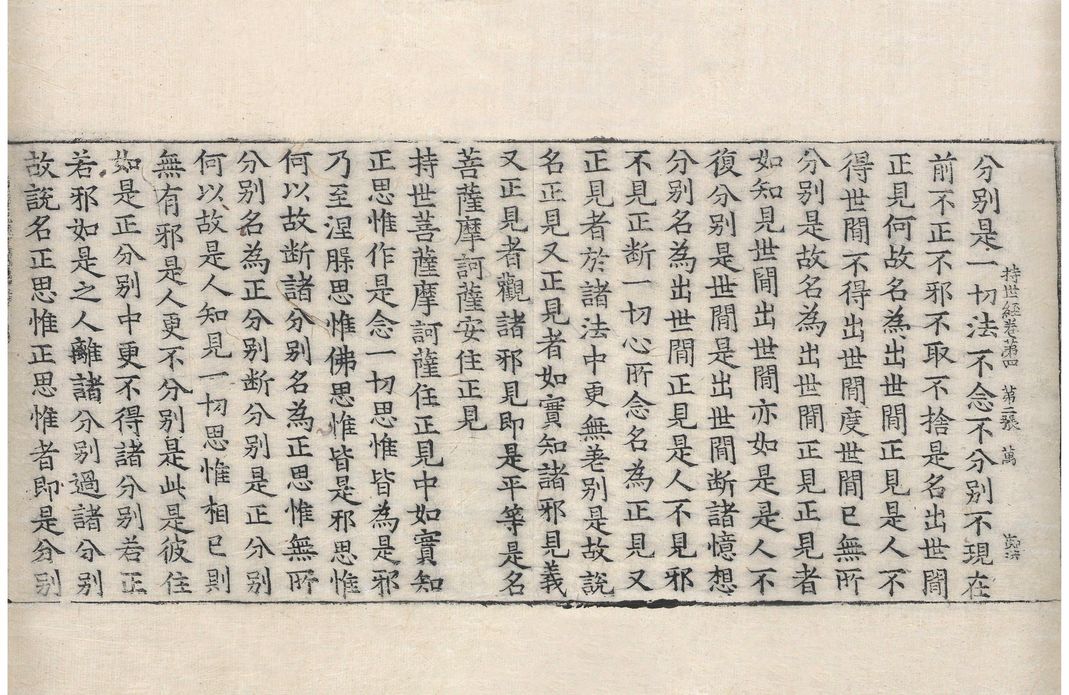 持世経卷第四　第二張　萬
分別是一切法不念不分別不現在
前不正不邪不取不捨是名出世間
正見何故名為出世間正見是人不
得世間不得出世間度世間已無所
分別是故名為出世間正見正見者
如知見世間出世間亦如是是人不
復分別是世間是出世間断諸憶想
分別名為出世間正見是人不見邪
不見正断一切心所念名為正見又
正見者於諸法中更無差別是故說
名正見又正見者如實知諸邪見義
又正見者觀諸邪見即是平等是名
菩薩摩訶薩安住正見
持世菩薩摩訶薩住正見中如實知
正思惟作是念一切思惟皆為是邪
乃至涅脲思惟佛思惟皆是邪思惟
何以故断諸分別名為正思惟無所
分別名為正分別断分別是正分別
何以故是人知見一切思惟相已則
無有邪是人更不分別是此是彼住
如是正分別中更不得諸分別若正
若邪如是之人離諸分別過諸分別
故說名正思惟正思惟者即是分別